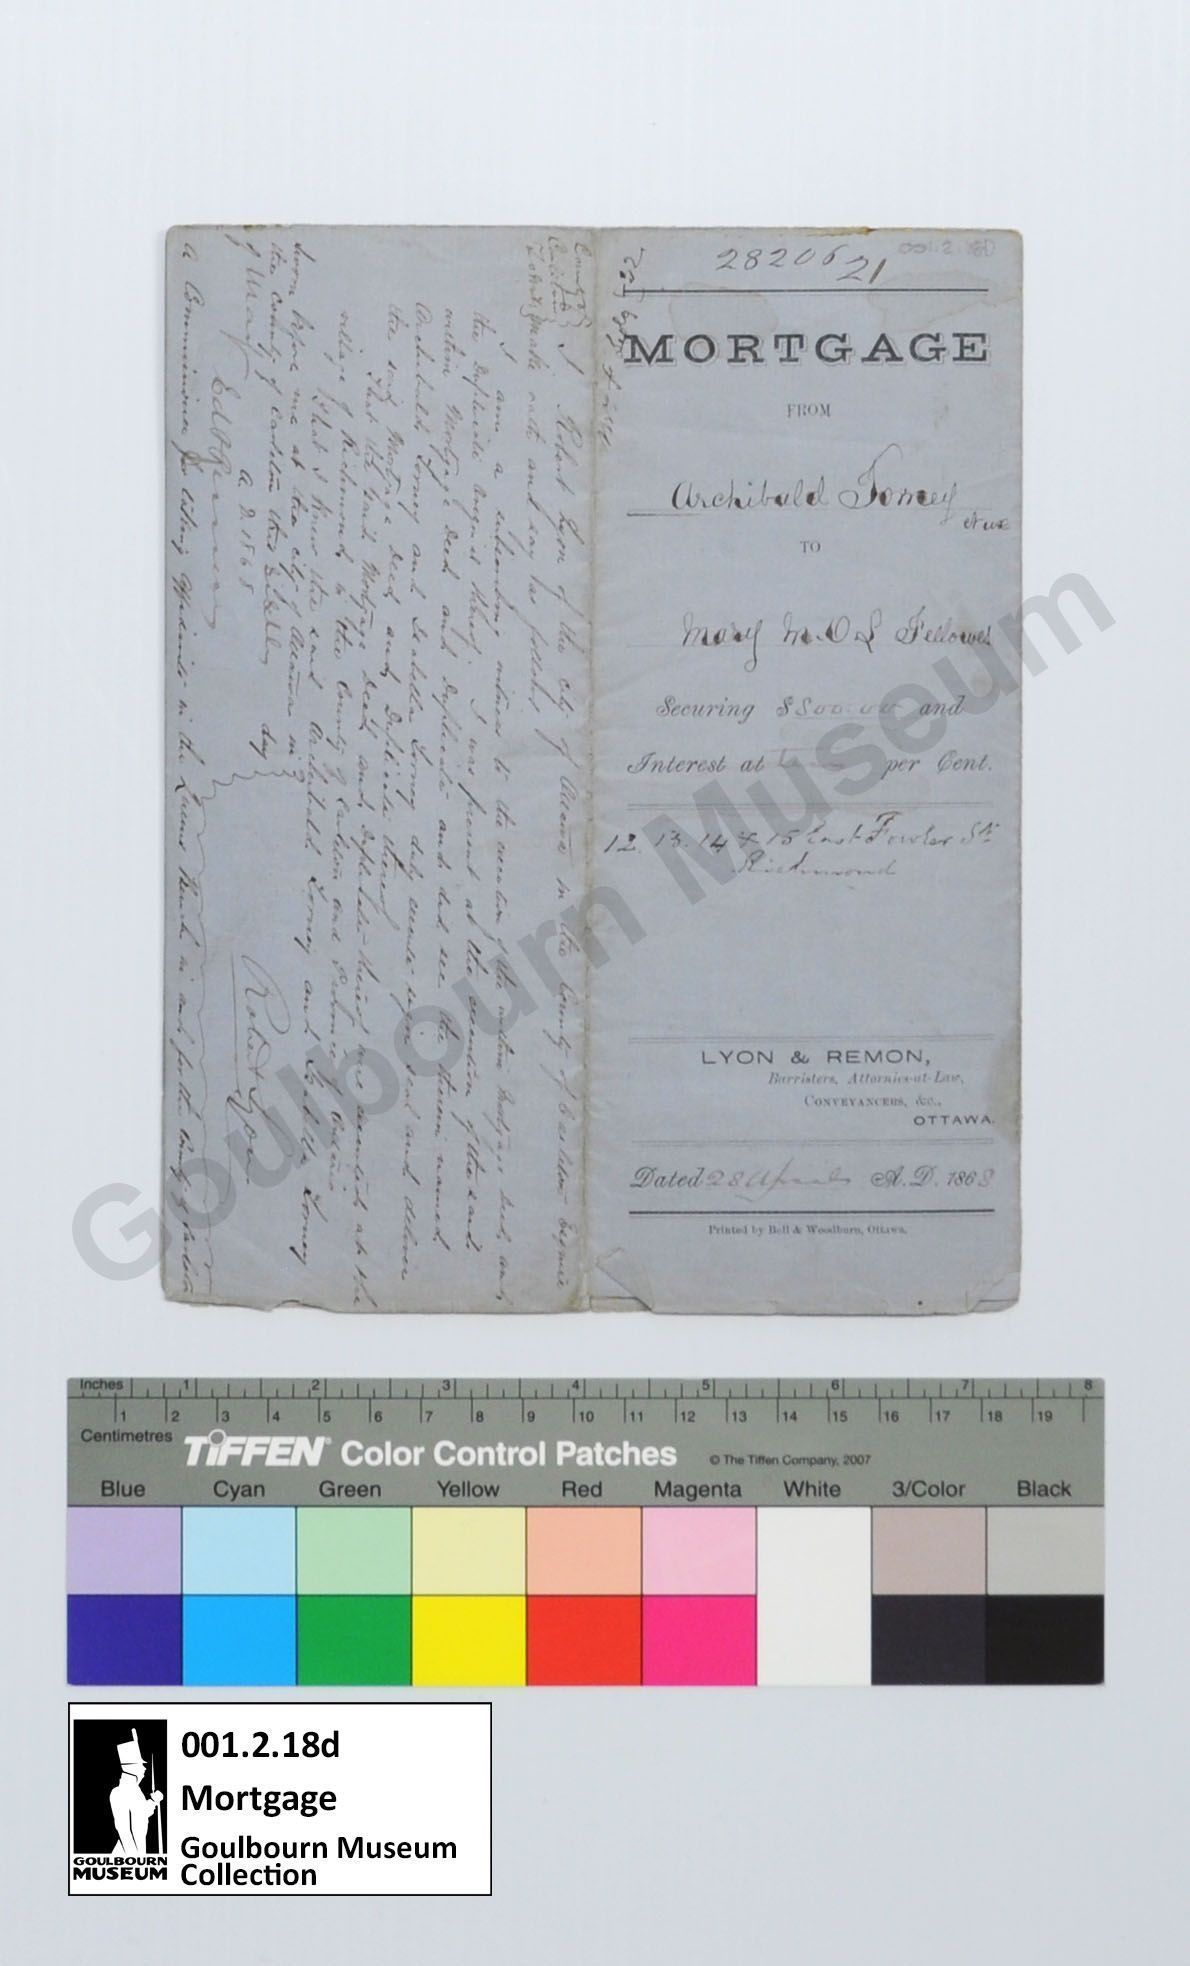 28206 21
001.2.18D
MORTGAGE
FROM
Archibald Torney
et ux
TO
Mary M. O L Fellowes
Securing $800.00 and
Interest at per Cent.
12. 13. 14 & 15 East Fowler St
Richmond
LYON & REMON,
Barristers, Attornies-at-Law,
CONVEYANCERS, &c.,
OTTAWA.
Dated 28 April A. D. 1868
Printed by Bell & Woodburn, Ottawa.
County of
Carleton
To Wit
I Robert Lyon of the city of Ottawa in the County of Carleton Esquire
make oath and say as follows
I am a subscribing witness to the execution of the within Mortgage deed and
the duplicate annexed thereof. I was present at the execution of the said
within Mortgage deed and duplicate and did see the therein named
Archibald Torney and Isabella Torney duly execute sign seal and deliver
the said Mortgage deed and Duplicate thereof
That the said Mortgage deed and duplicate thereof were executed at the
village of Richmond in the County of Carleton and Province of Ontario
That I know the said Archibald Torney and Isabella Torney
Sworn before me at the city of Ottawa in
the county of Carleton this day
of May A. D. 1868
Robert Lyon
A Commissioner for taking affidavits in the Queens Bench in and for the County of Carleton
Goulbourn Museum
Inches 1 2 3 4 5 6 7 8
Centimetres 1 2 3 4 5 6 7 8 9 10 11 12 13 14 15 16 17 18 19
TIFFEN® Color Control Patches © The Tiffen Company, 2007
Blue Cyan Green Yellow Red Magenta White 3/Color Black
001.2.18d
Mortgage
Goulbourn Museum
Collection
GOULBOURN
MUSEUM